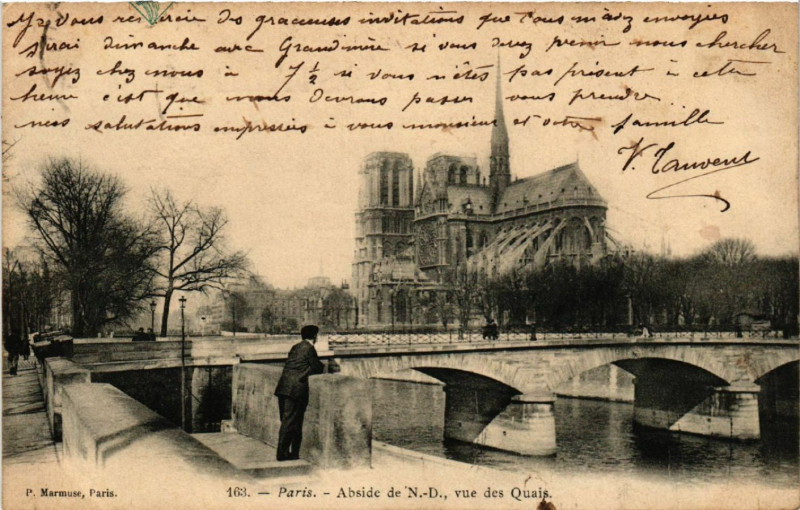 Je vous remercie des gracieuses invitations que vous m'avez envoyées
Je serai dimanche avec Grandmère si vous devez venir nous chercher
soyez chez nous à 7 1/2 si vous n'êtes pas présent à cette
heure c'est que nous devrons passer vous prendre.
mes salutations empressées à vous monsieur et votre famille
V. Tauvent
P. Marmuse, Paris.
163. — Paris. - Abside de N.-D., vue des Quais.